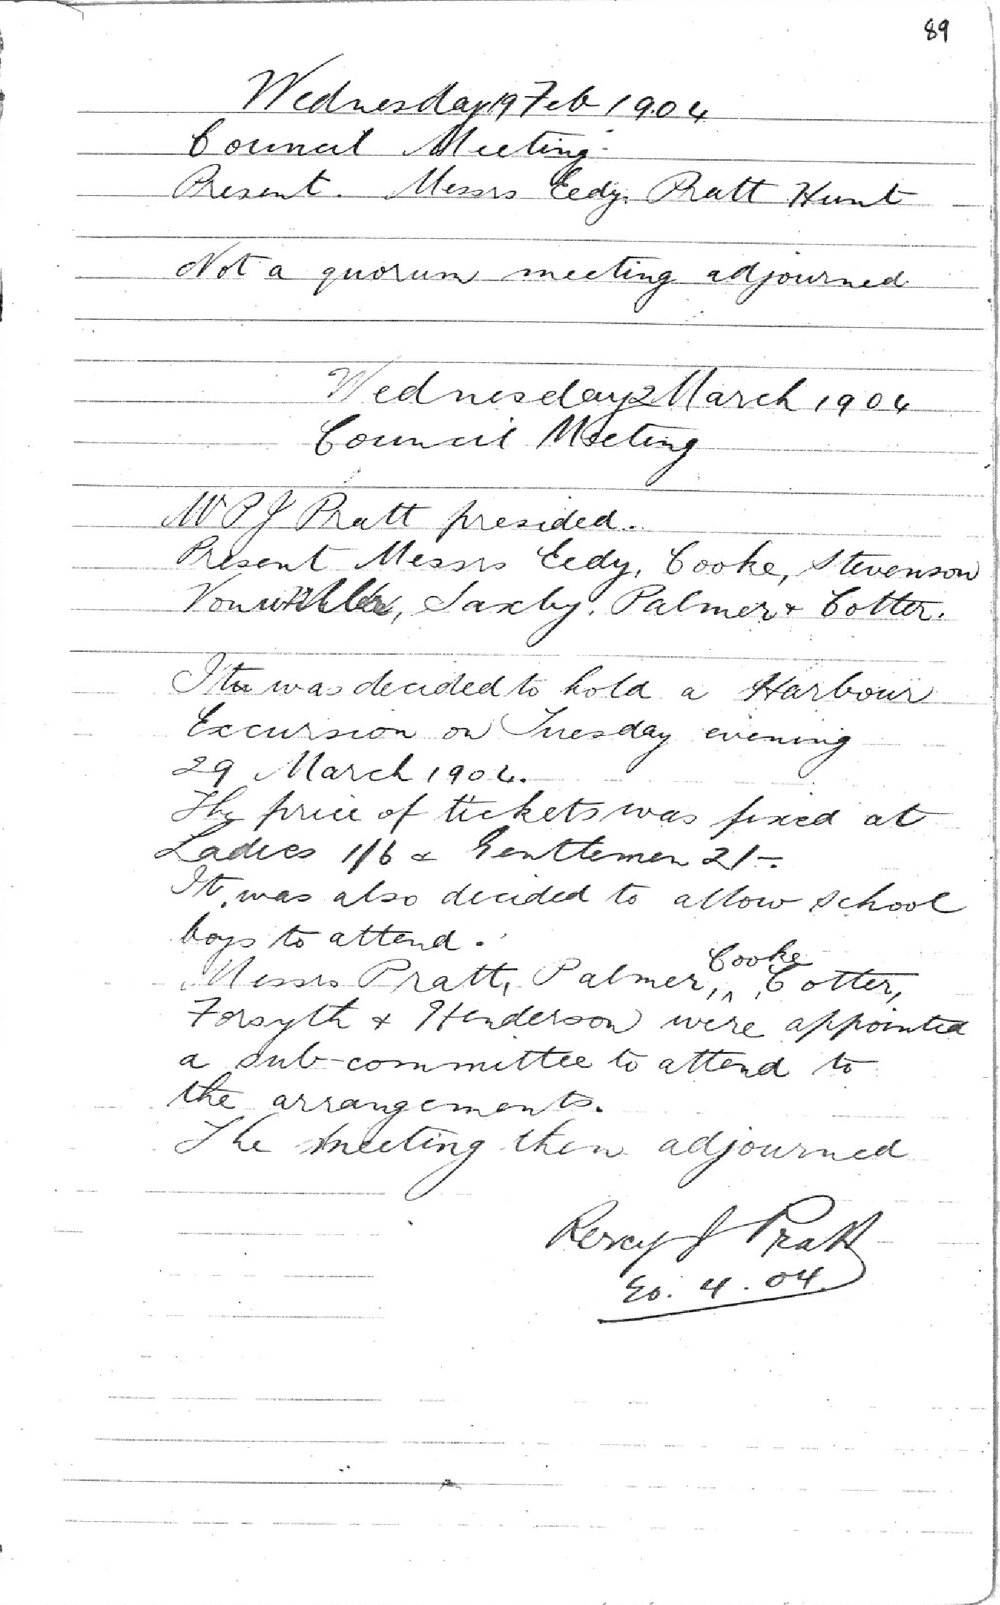 89
Wednesday 19 Feb 1904
Council Meeting.
Present. Messrs Eedy, Pratt Hunt
Not a quorum meeting adjourned
Wednesday 2 March 1904
Council Meeting
Mr P J Pratt presided.
Present Messrs Eedy, Cooke, Stevenson
Vonwiller, Saxby, Palmer & Cotter.
It was decided to hold a Harbour
Excursion on Tuesday evening
29 March 1904.
The price of tickets was fixed at
Ladies 1/6 & Gentlemen 2/-.
It was also decided to allow school
boys to attend.
Messrs Pratt, Palmer, Cooke, Cotter,
Forsyth & Henderson were appointed
a sub-committee to attend to
the arrangements.
The meeting then adjourned
Percy J Pratt
4.04